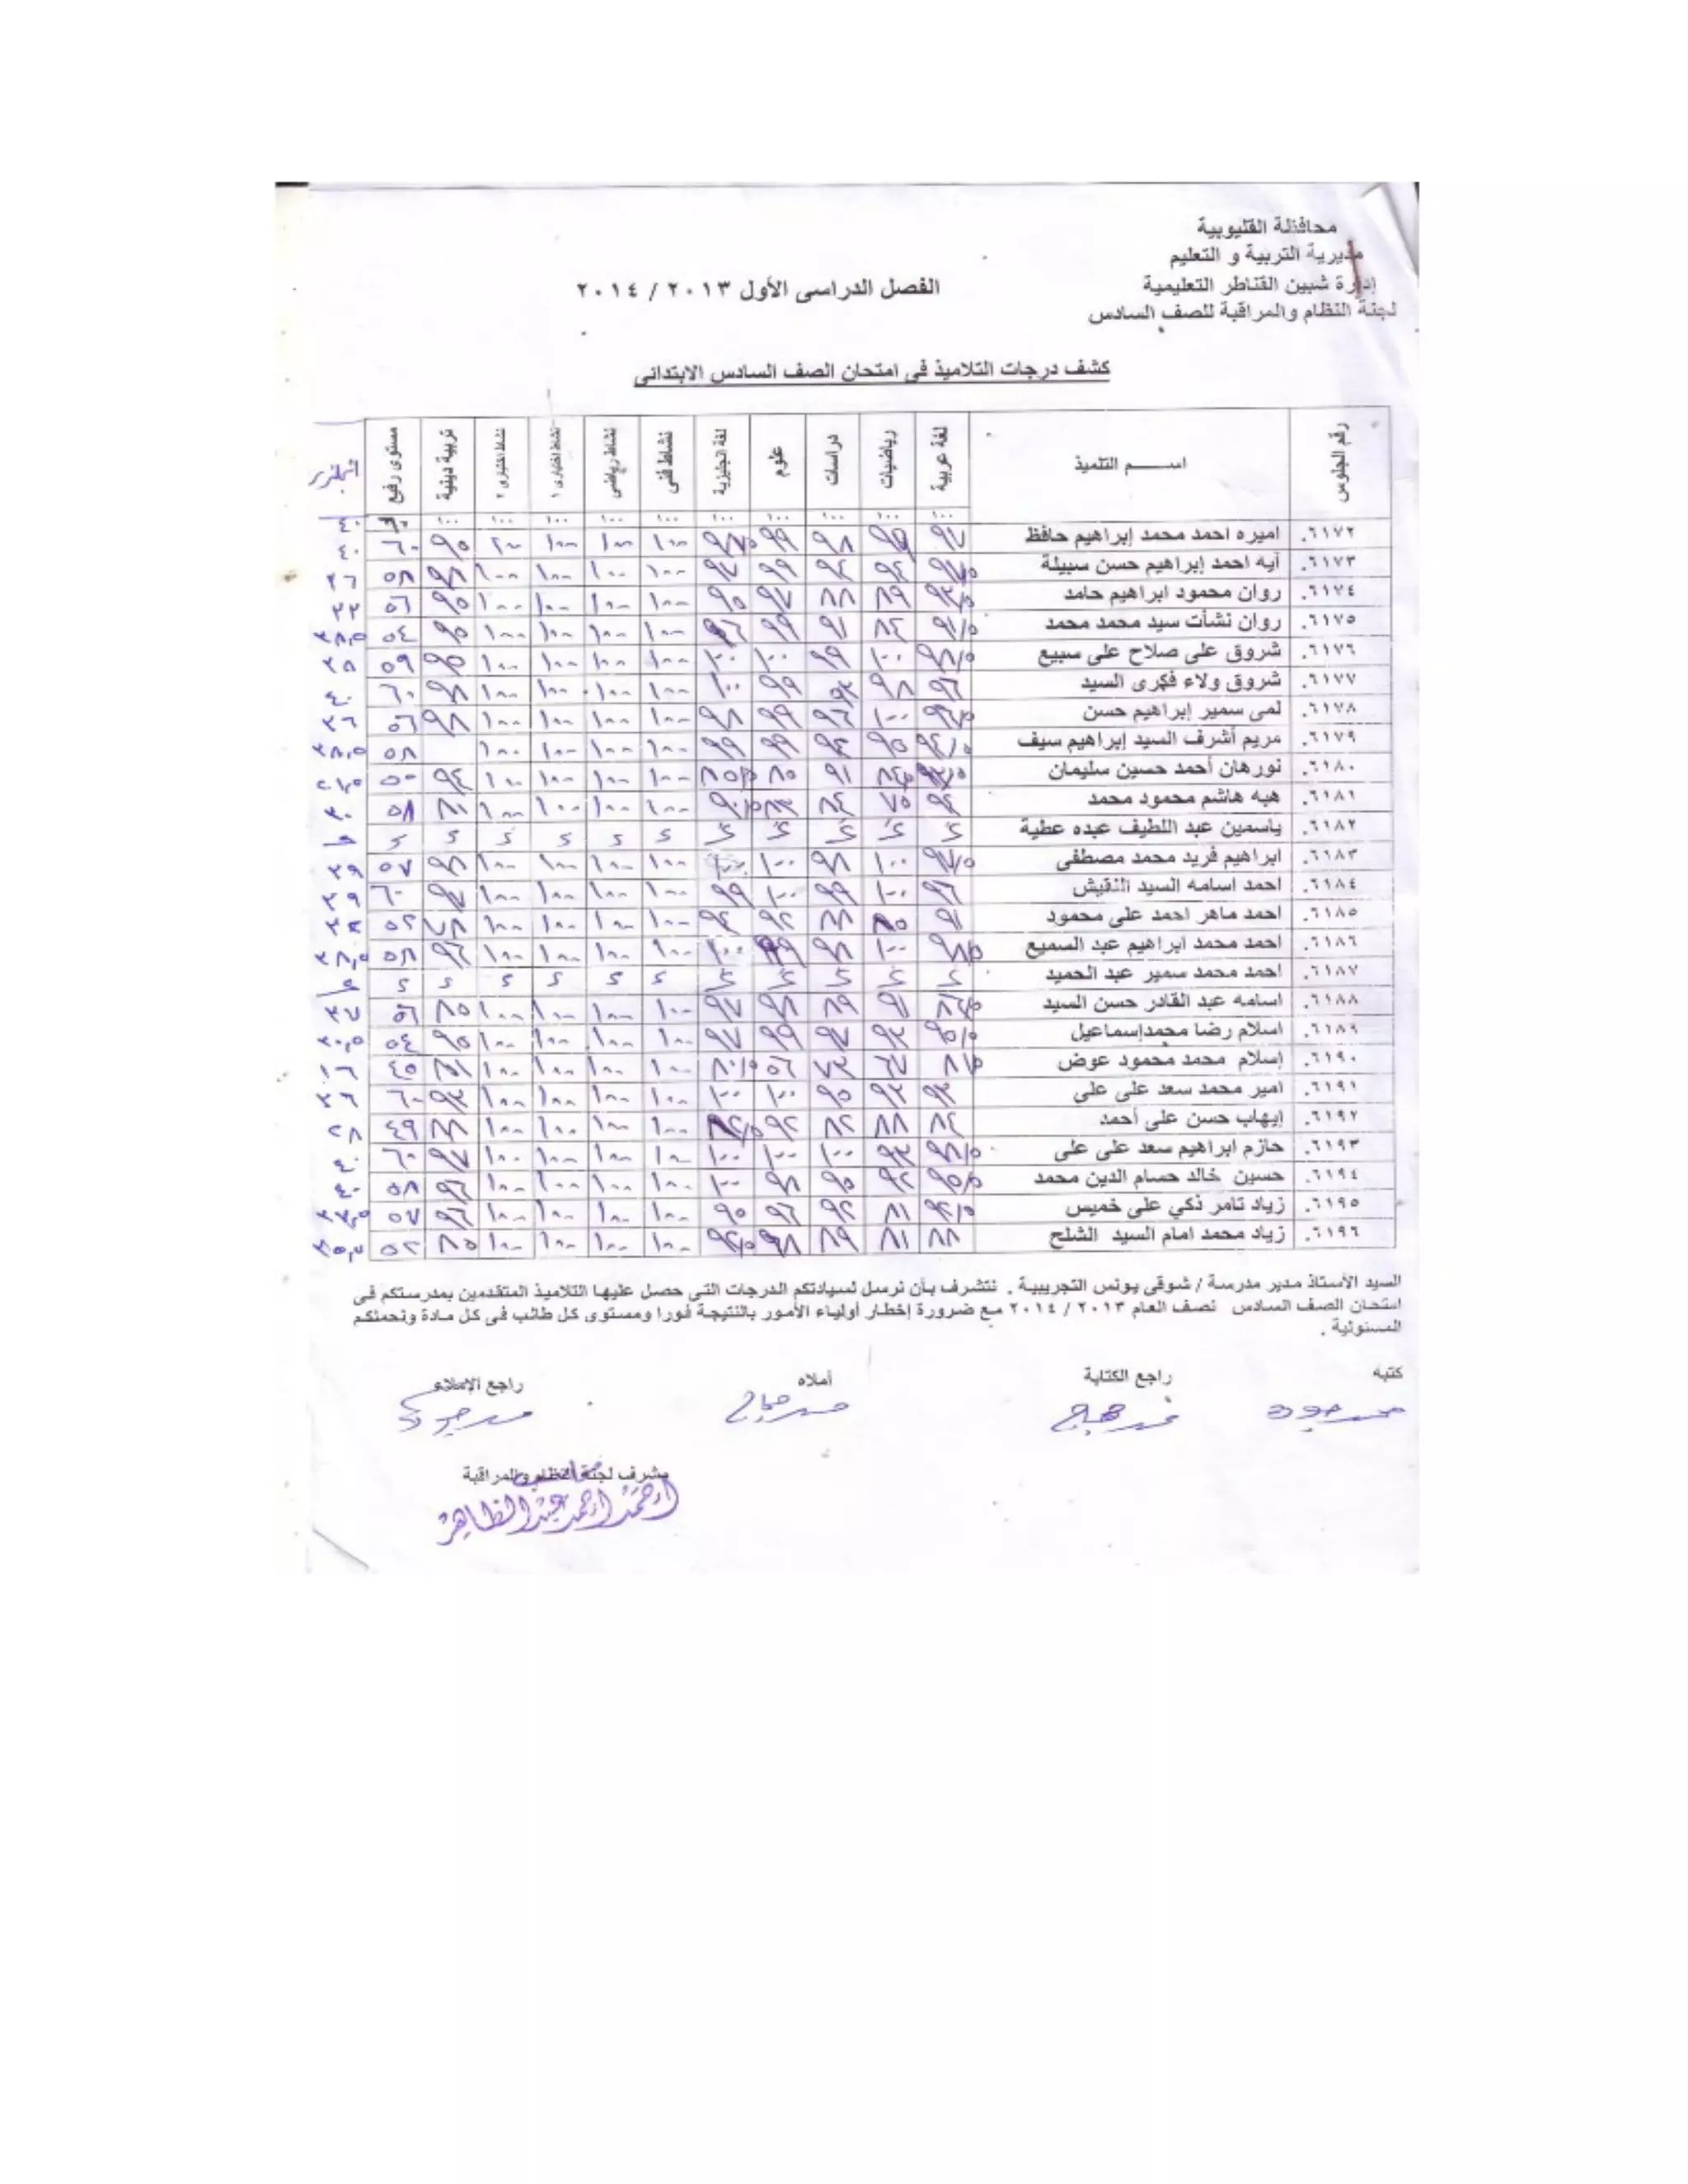 محافظة القليوبية
مديرية التربية و التعليم
إدارة شبين القناطر التعليمية
لجنة النظام والمراقبة للصف السادس
الفصل الدراسى الأول ٢٠١٣ / ٢٠١٤
كشف درجات التلاميذ فى امتحان الصف السادس الابتدائى
رقم الجلوس اســـــم التلميذ لغة عربية رياضيات دراسات علوم لغة انجليزية نشاط فنى نشاط رياضى نشاط اختيارى ١ نشاط اختيارى ٢ تربية دينية مستوى رفيع
١٠٠ ١٠٠ ١٠٠ ١٠٠ ١٠٠ ١٠٠ ١٠٠ ١٠٠ ١٠٠ ٤٠
٦١٧٢. اميره احمد محمد إبراهيم حافظ ٩٧ ٩٨ ٩٩ ١٠٠ ١٠٠ ١٠٠ ٩٥ ٦٠ ٤٠
٦١٧٣. آيه احمد إبراهيم حسن سبيلة ٩٧/٥ ٩٤ ٩٤ ٩٩ ٩٧ ١٠٠ ١٠٠ ١٠٠ ١٠٠ ٩٨ ٥٨ ٣٦
٦١٧٤. روان محمود ابراهيم حامد ٨٩ ٨٨ ٩٧ ٩٥ ١٠٠ ١٠٠ ١٠٠ ١٠٠ ٩٥ ٥٦
٦١٧٥. روان نشأت سيد محمد محمد ٩١/٥ ٨٤ ٩١ ٩٩ ٩٦ ١٠٠ ١٠٠ ١٠٠ ١٠٠ ٩٥ ٥٤
٦١٧٦. شروق على صلاح على سبيع ٩٨/٥ ١٠٠ ٩٩ ١٠٠ ١٠٠ ١٠٠ ١٠٠ ١٠٠ ١٠٠ ٩٥ ٥٩ ٣٨
٦١٧٧. شروق ولاء فكرى السيد ٩٦ ٩٨ ٩٩ ١٠٠ ١٠٠ ١٠٠ ١٠٠ ١٠٠ ٩٨ ٦٠ ٤٠
٦١٧٨. لمى سمير إبراهيم حسن ١٠٠ ٩٦ ٩٩ ٩٨ ١٠٠ ١٠٠ ١٠٠ ١٠٠ ٩٨ ٥٦ ٣٦
٦١٧٩. مريم أشرف السيد إبراهيم سيف ٩٤/٥ ٩٥ ٩٤ ٩٩ ٩٩ ١٠٠ ١٠٠ ١٠٠ ١٠٠ ٥٨ ٣٨,٥
٦١٨٠. نورهان أحمد حسين سليمان ٩١ ٨٥ ١٠٠ ١٠٠ ١٠٠ ١٠٠ ٩٤ ٥٠
٦١٨١. هبه هاشم محمود محمد ٩٤ ٧٥ ٨٤ ٩٠/٥ ١٠٠ ١٠٠ ١٠٠ ١٠٠ ٨١ ٥٨ ٣٠
٦١٨٢. ياسمين عبد اللطيف عبده عطية
٦١٨٣. ابراهيم فريد محمد مصطفى ٩٧/٥ ١٠٠ ٩٨ ١٠٠ ١٠٠ ١٠٠ ١٠٠ ١٠٠ ٩٨ ٥٧ ٣٩
٦١٨٤. احمد اسامه السيد النقيش ٩٦ ١٠٠ ٩٩ ١٠٠ ٩٩ ١٠٠ ١٠٠ ١٠٠ ١٠٠ ٩٧ ٦٠ ٣٩
٦١٨٥. احمد ماهر احمد على محمود ٩١ ٨٨ ٩٢ ٩٤ ١٠٠ ١٠٠ ١٠٠ ١٠٠ ٧٨ ٥٢
٦١٨٦. احمد محمد ابراهيم عبد السميع ٩٨/٥ ١٠٠ ٩٨ ١٠٠ ١٠٠ ١٠٠ ١٠٠ ١٠٠ ٩٦ ٥٨ ٣٨,٥
٦١٨٧. احمد محمد سمير عبد الحميد
٦١٨٨. اسامه عبد القادر حسن السيد ٩١ ٨٩ ٩٨ ٩٧ ١٠٠ ١٠٠ ١٠٠ ١٠٠ ٨٥ ٥٦ ٣٧
٦١٨٩. اسلام رضا محمد إسماعيل ٩٥/٥ ٩٣ ٩٧ ٩٩ ٩٧ ١٠٠ ١٠٠ ١٠٠ ١٠٠ ٩٥ ٥٤ ٣٠,٥
٦١٩٠. إسلام محمد محمود عوض ٦٧ ٧٣ ٥٦ ٨٠/٥ ١٠٠ ١٠٠ ١٠٠ ١٠٠ ٤٥ ١٦
٦١٩١. امير محمد سعد على على ٩٣ ٩٣ ٩٥ ١٠٠ ١٠٠ ١٠٠ ١٠٠ ١٠٠ ١٠٠ ٩٣ ٦٠ ٣٦
٦١٩٢. إيهاب حسن على أحمد ٨٤ ٨٨ ٨٢ ٩٢ ١٠٠ ١٠٠ ١٠٠ ١٠٠ ٨٨ ٤٩ ٢٨
٦١٩٣. حازم ابراهيم سعد على على ٩٨/٥ ٩٣ ١٠٠ ١٠٠ ١٠٠ ١٠٠ ١٠٠ ١٠٠ ١٠٠ ٩٧ ٦٠ ٤٠
٦١٩٤. حسين خالد حسام الدين محمد ٩٥/٥ ٩٢ ٩٥ ٩٨ ١٠٠ ١٠٠ ١٠٠ ١٠٠ ١٠٠ ٩٦ ٥٨ ٤٠
٦١٩٥. زياد تامر ذكي على خميس ٩٤/٥ ٨١ ٩٢ ٩٦ ٩٥ ١٠٠ ١٠٠ ١٠٠ ١٠٠ ٩٦ ٥٧ ٣٣,٥
٦١٩٦. زياد محمد امام السيد الشلح ٨٨ ٨١ ٨٩ ٩٨ ٩٤/٥ ١٠٠ ١٠٠ ١٠٠ ١٠٠ ٨٥ ٥٢
السيد الأستاذ مدير مدرسة / شوقى يونس التجريبية . نتشرف بأن نرسل لسيادتكم الدرجات التى حصل عليها التلاميذ المتقدمين بمدرستكم فى
امتحان الصف السادس نصف العام ٢٠١٣ / ٢٠١٤ مع ضرورة إخطار أولياء الأمور بالنتيجة فورا ومستوى كل طالب فى كل مادة وتحملكم
المسئولية .
كتبه راجع الكتابة أملاه راجع الإملاء
مشرف لجنة النظام والمراقبة
احمد احمد عبد الظاهر